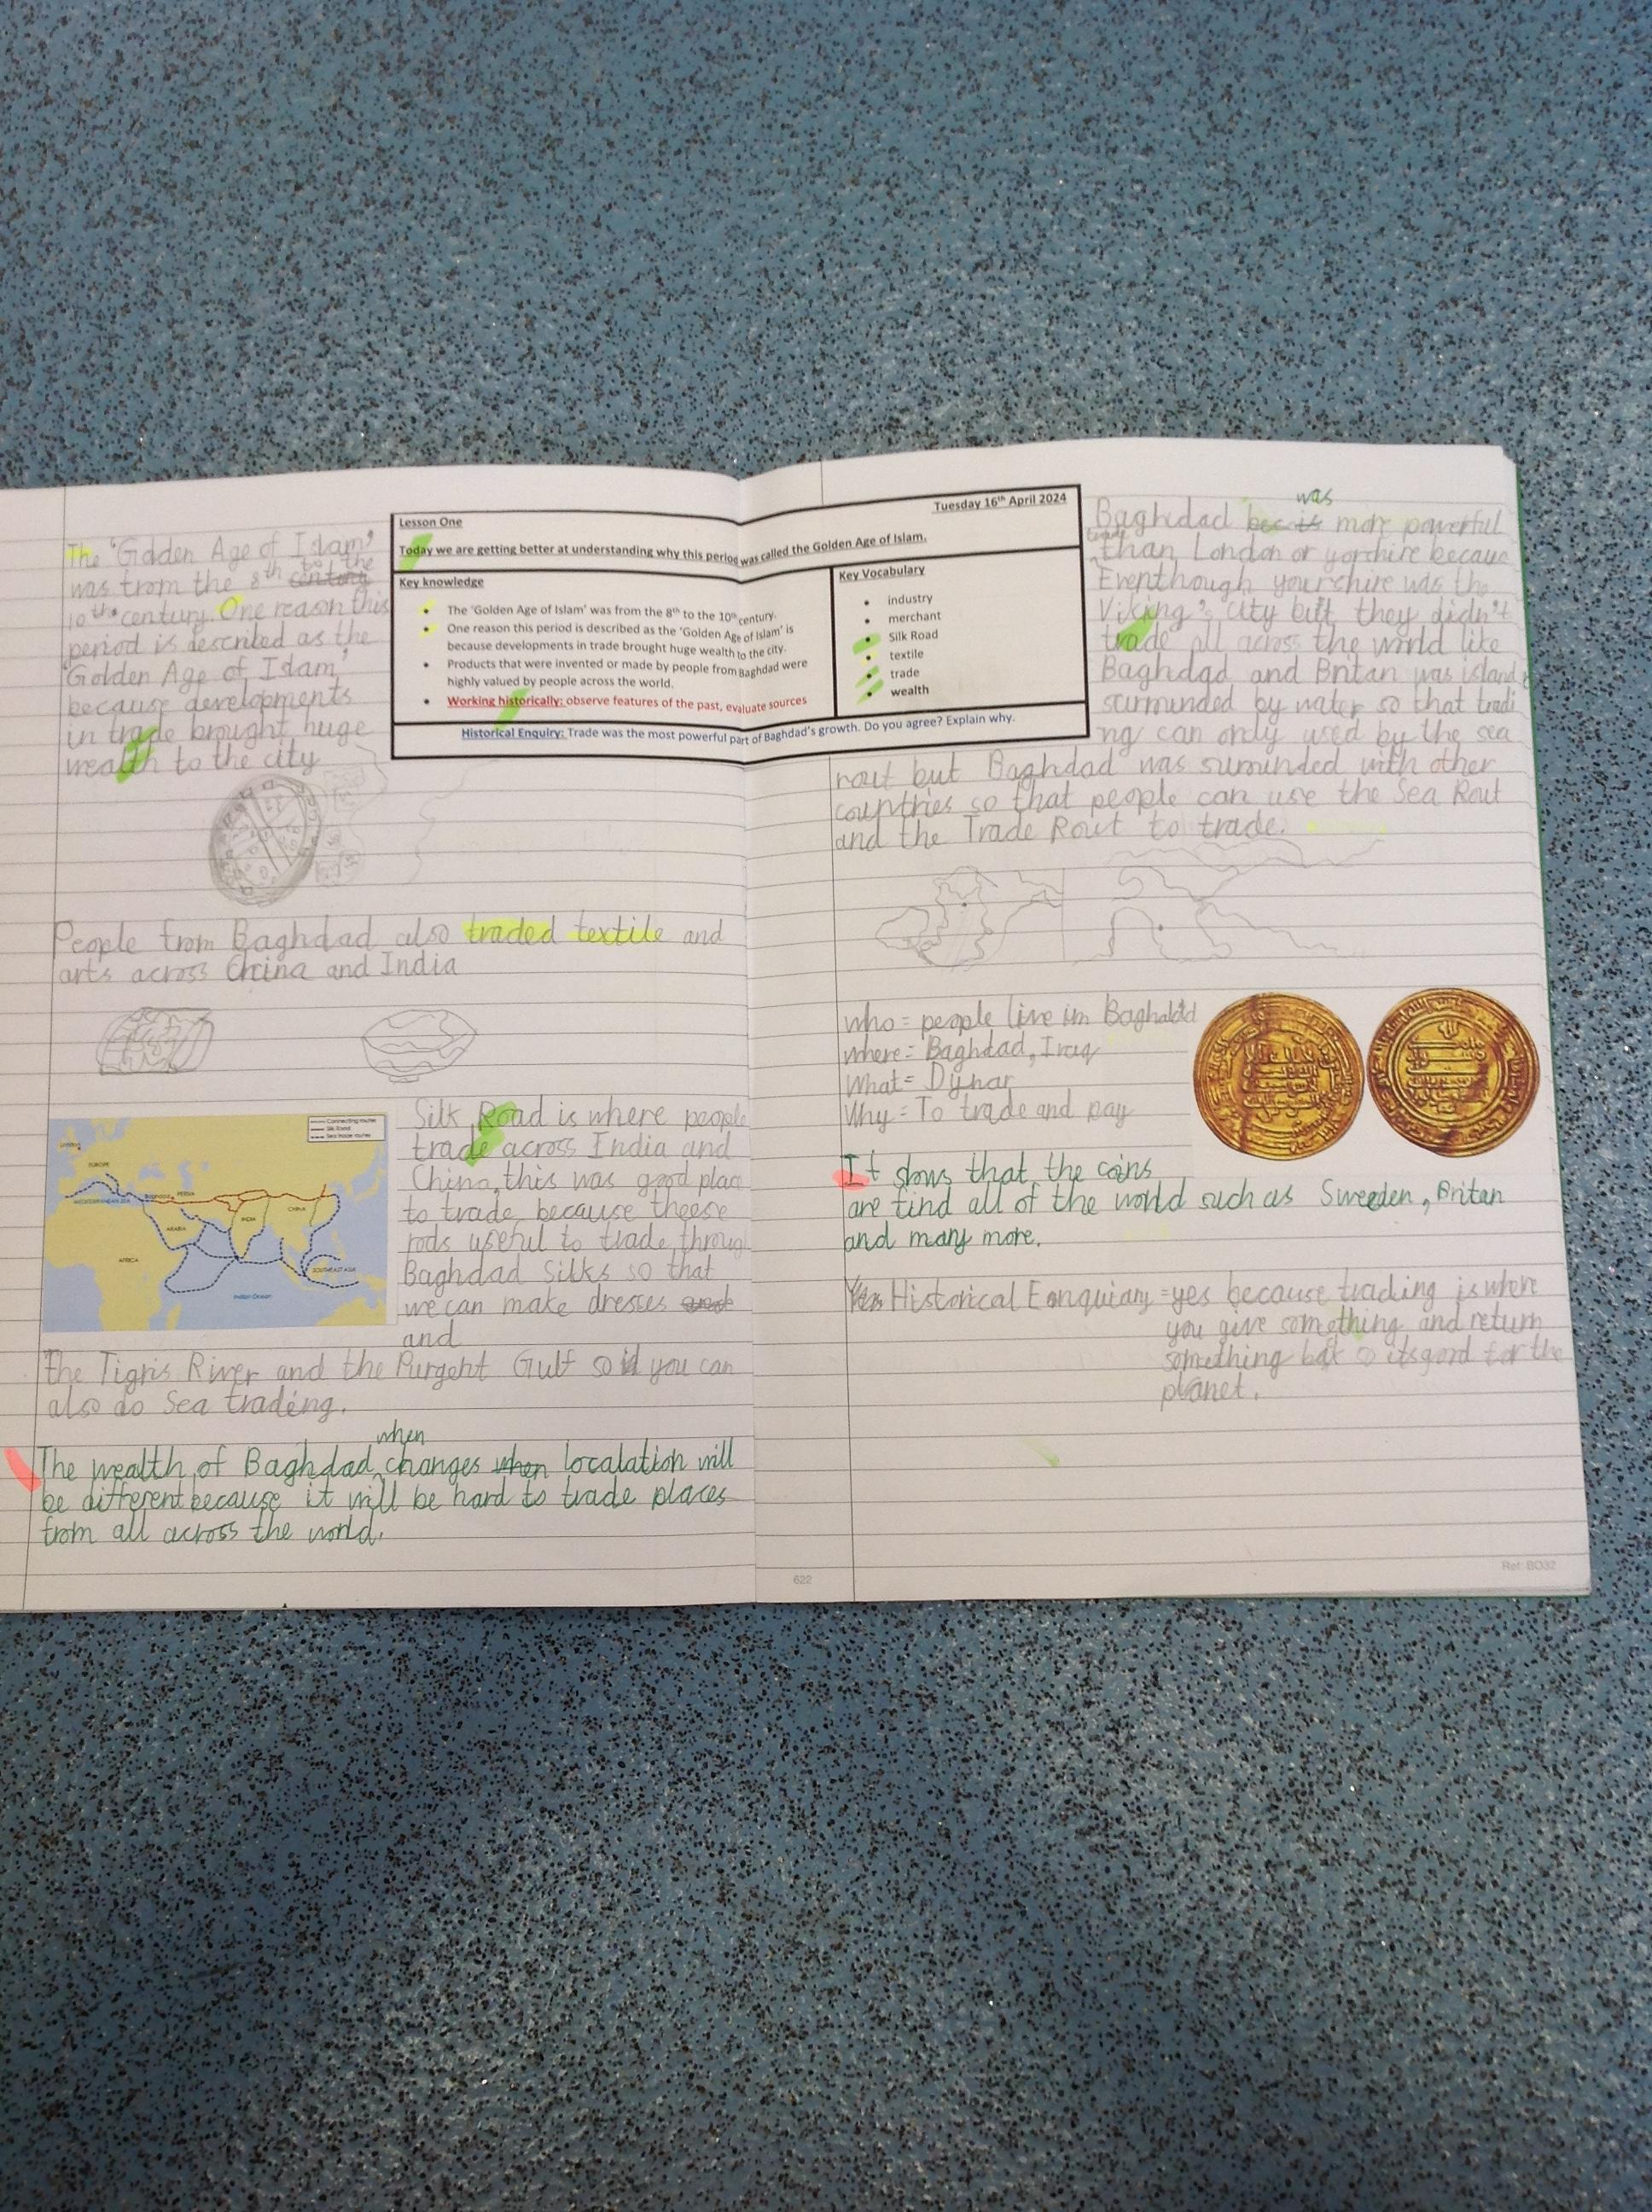 Tuesday 16th April 2024
Lesson One
Today we are getting better at understanding why this period was called the Golden Age of Islam.
Key knowledge
The 'Golden Age of Islam' was from the 8th to the 10th century.
One reason this period is described as the 'Golden Age of Islam' is
because developments in trade brought huge wealth to the city.
Products that were invented or made by people from Baghdad were
highly valued by people across the world.
Working historically: observe features of the past, evaluate sources
Key Vocabulary
industry
merchant
Silk Road
textile
trade
wealth
Historical Enquiry: Trade was the most powerful part of Baghdad's growth. Do you agree? Explain why.
The 'Golden Age of Islam'
was from the 8th to the
10th century. One reason this
period is described as the
'Golden Age of Islam'
because developments
in trade brought huge
wealth to the city
People from Baghdad also traded textile and
arts across China and India
Connecting routes
Silk Road
Sea trade routes
London
EUROPE
MEDITERRANEAN SEA
PERSIA
ARABIA
INDIA
CHINA
AFRICA
SOUTHEAST ASIA
Indian Ocean
Silk Road is where people
trade across India and
China, this was good plac
to trade, because theese
rods useful to trade, throug
Baghdad Silks so that
we can make dresses
and
the Tigris River and the Purgent Gulf so if you can
also do Sea trading.
when
The wealth of Baghdad changes when localation will
be different because it will be hard to trade places
from all across the world.
was
Baghdad more powerful
than London or yorchire because
Eventhough yourchire was the
Viking's city but they didn't
trade all across the world like
Baghdad and Britan was island
surrunded by water so that tradi
ng can only used by the sea
rout but Baghdad was surrunded with other
countries so that people can use the Sea Rout
and the Trade Rout to trade.
who = people live in Baghdad
where = Baghdad, Iraq
What = Dynar
Why = To trade and pay
It shows that the coins
are find all of the world such as Sweeden, Britan
and many more.
Historical Enquiary = yes because trading is where
you give something and return
something bak so its good for the
planet.
622
Ref: BO32